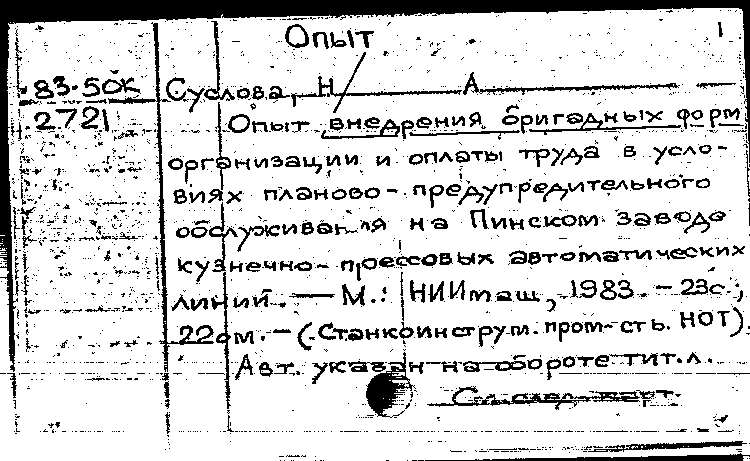 Опыт
1
83-50К
2721
Суслова, Н А
Опыт внедрения бригадных форм
организации и оплаты труда в усло-
виях планово-предупредительного
обслуживания на Пинском заводе
кузнечно-прессовых автоматических
линий. — М.: НИИмаш, 1983. - 23с.;
22см. - (Станкоинструм. пром-сть. НОТ).
Авт. указан на обороте тит.л.
См. след. карт.